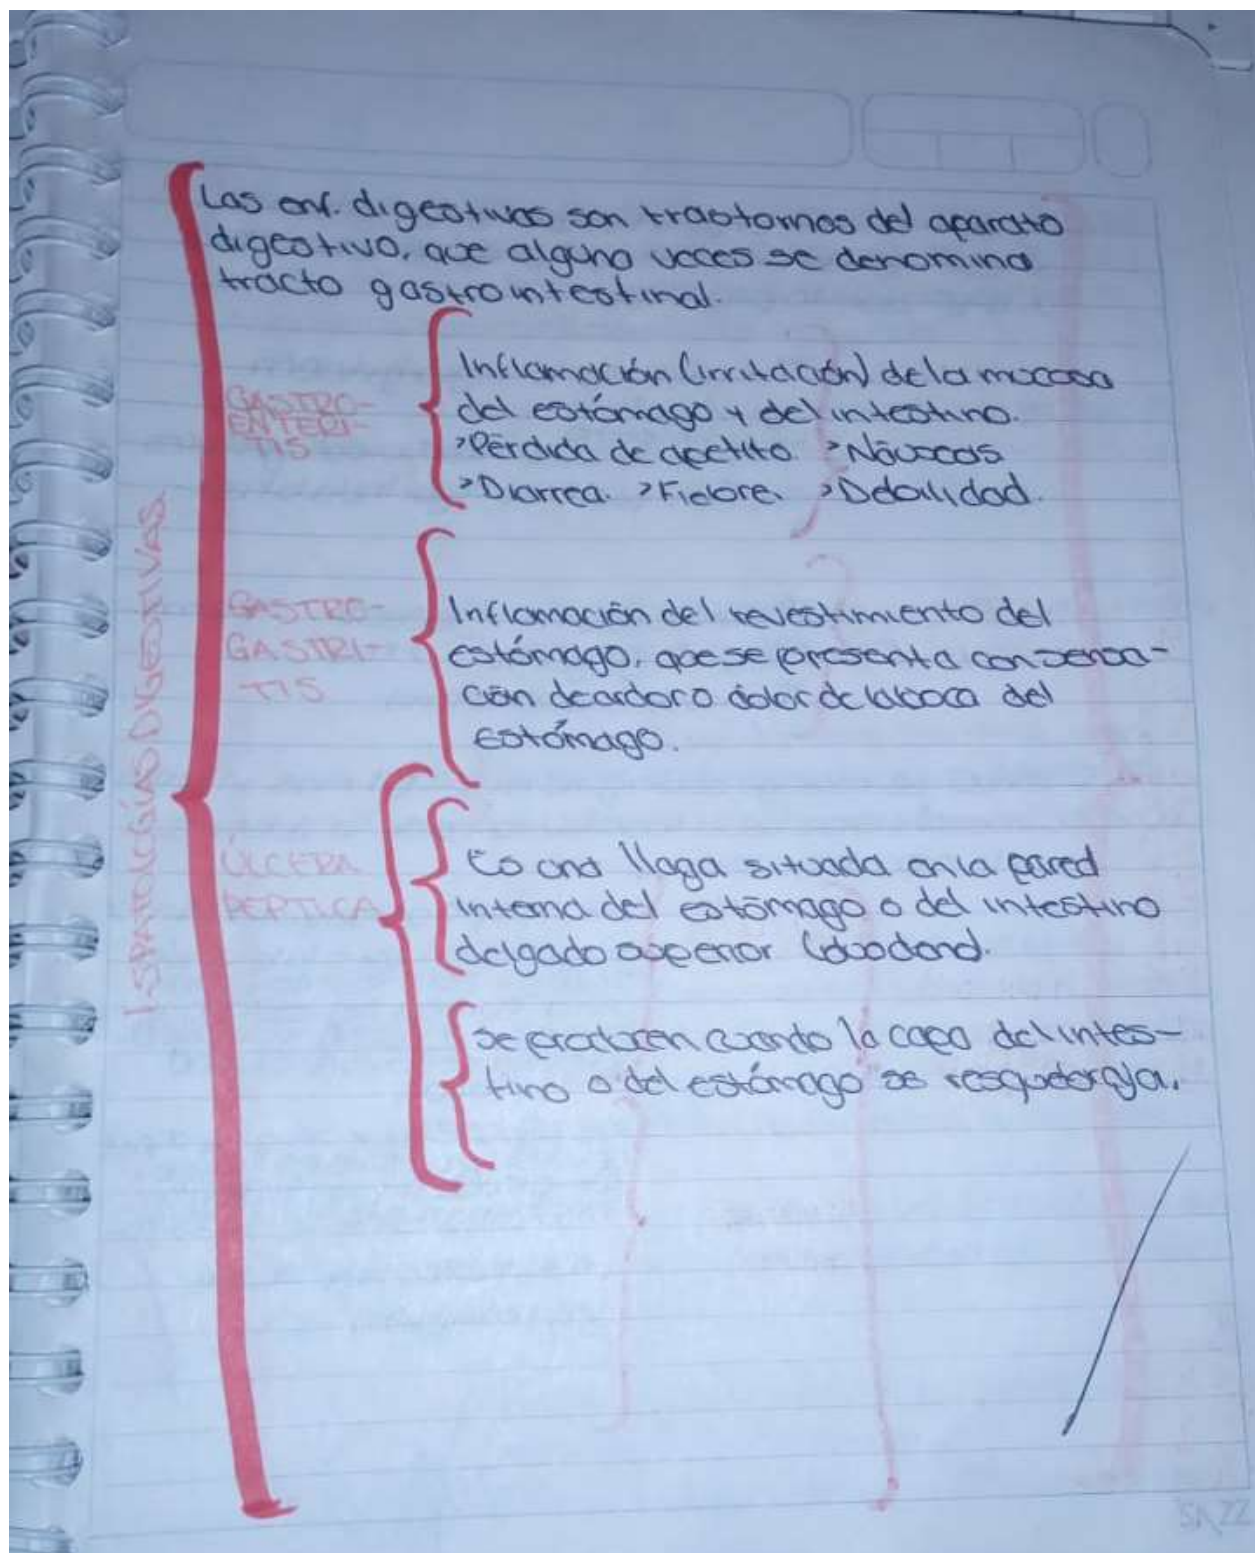 Las enf. digestivas son trastornos del aparato
digestivo, que alguna veces se denomina
tracto gastrointestinal.
GASTRO-
ENTERI-
TIS
Inflamación (irritación) de la mucosa
del estómago y del intestino.
>Pérdida de apetito >Náuseas
>Diarrea. >Fiebre. >Debilidad.
1. PATOLOGÍAS DIGESTIVAS
GASTRO-
GASTRI-
TIS
Inflamación del revestimiento del
estómago, que se presenta con sensa-
ción de ardor o dolor de la boca del
estómago.
ÚLCERA
PEPTICA
Es una llaga situada en la pared
interna del estómago o del intestino
delgado superior
Se producen cuando la capa del intes-
tino o del estómago se
SAZZ